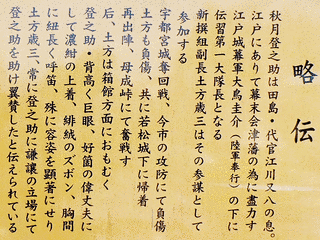 略伝
秋月登之助は田島・代官江川又八の息。
江戸にありて幕末会津藩の為に盡力す
江戸城幕軍大鳥圭介(陸軍奉行)の下に
伝習第一大隊長となる
新撰組副長土方歳三はその参謀として
参加する
宇都宮城奪回戦、今市の攻防にて負傷
土方も負傷、共に若松城下に帰着
再出陣、母成峠にて奮戦す
后、土方は箱館方面におもむく
登之助・背高く巨眼、好箇の偉丈夫に
して濃紺の上着、緋絨のズボン、胸間
に紐長く呼笛、殊に容姿を顕著にせり
土方歳三、常に登之助に謙譲の立場にて
登之助を助け翼賛したと伝えられている